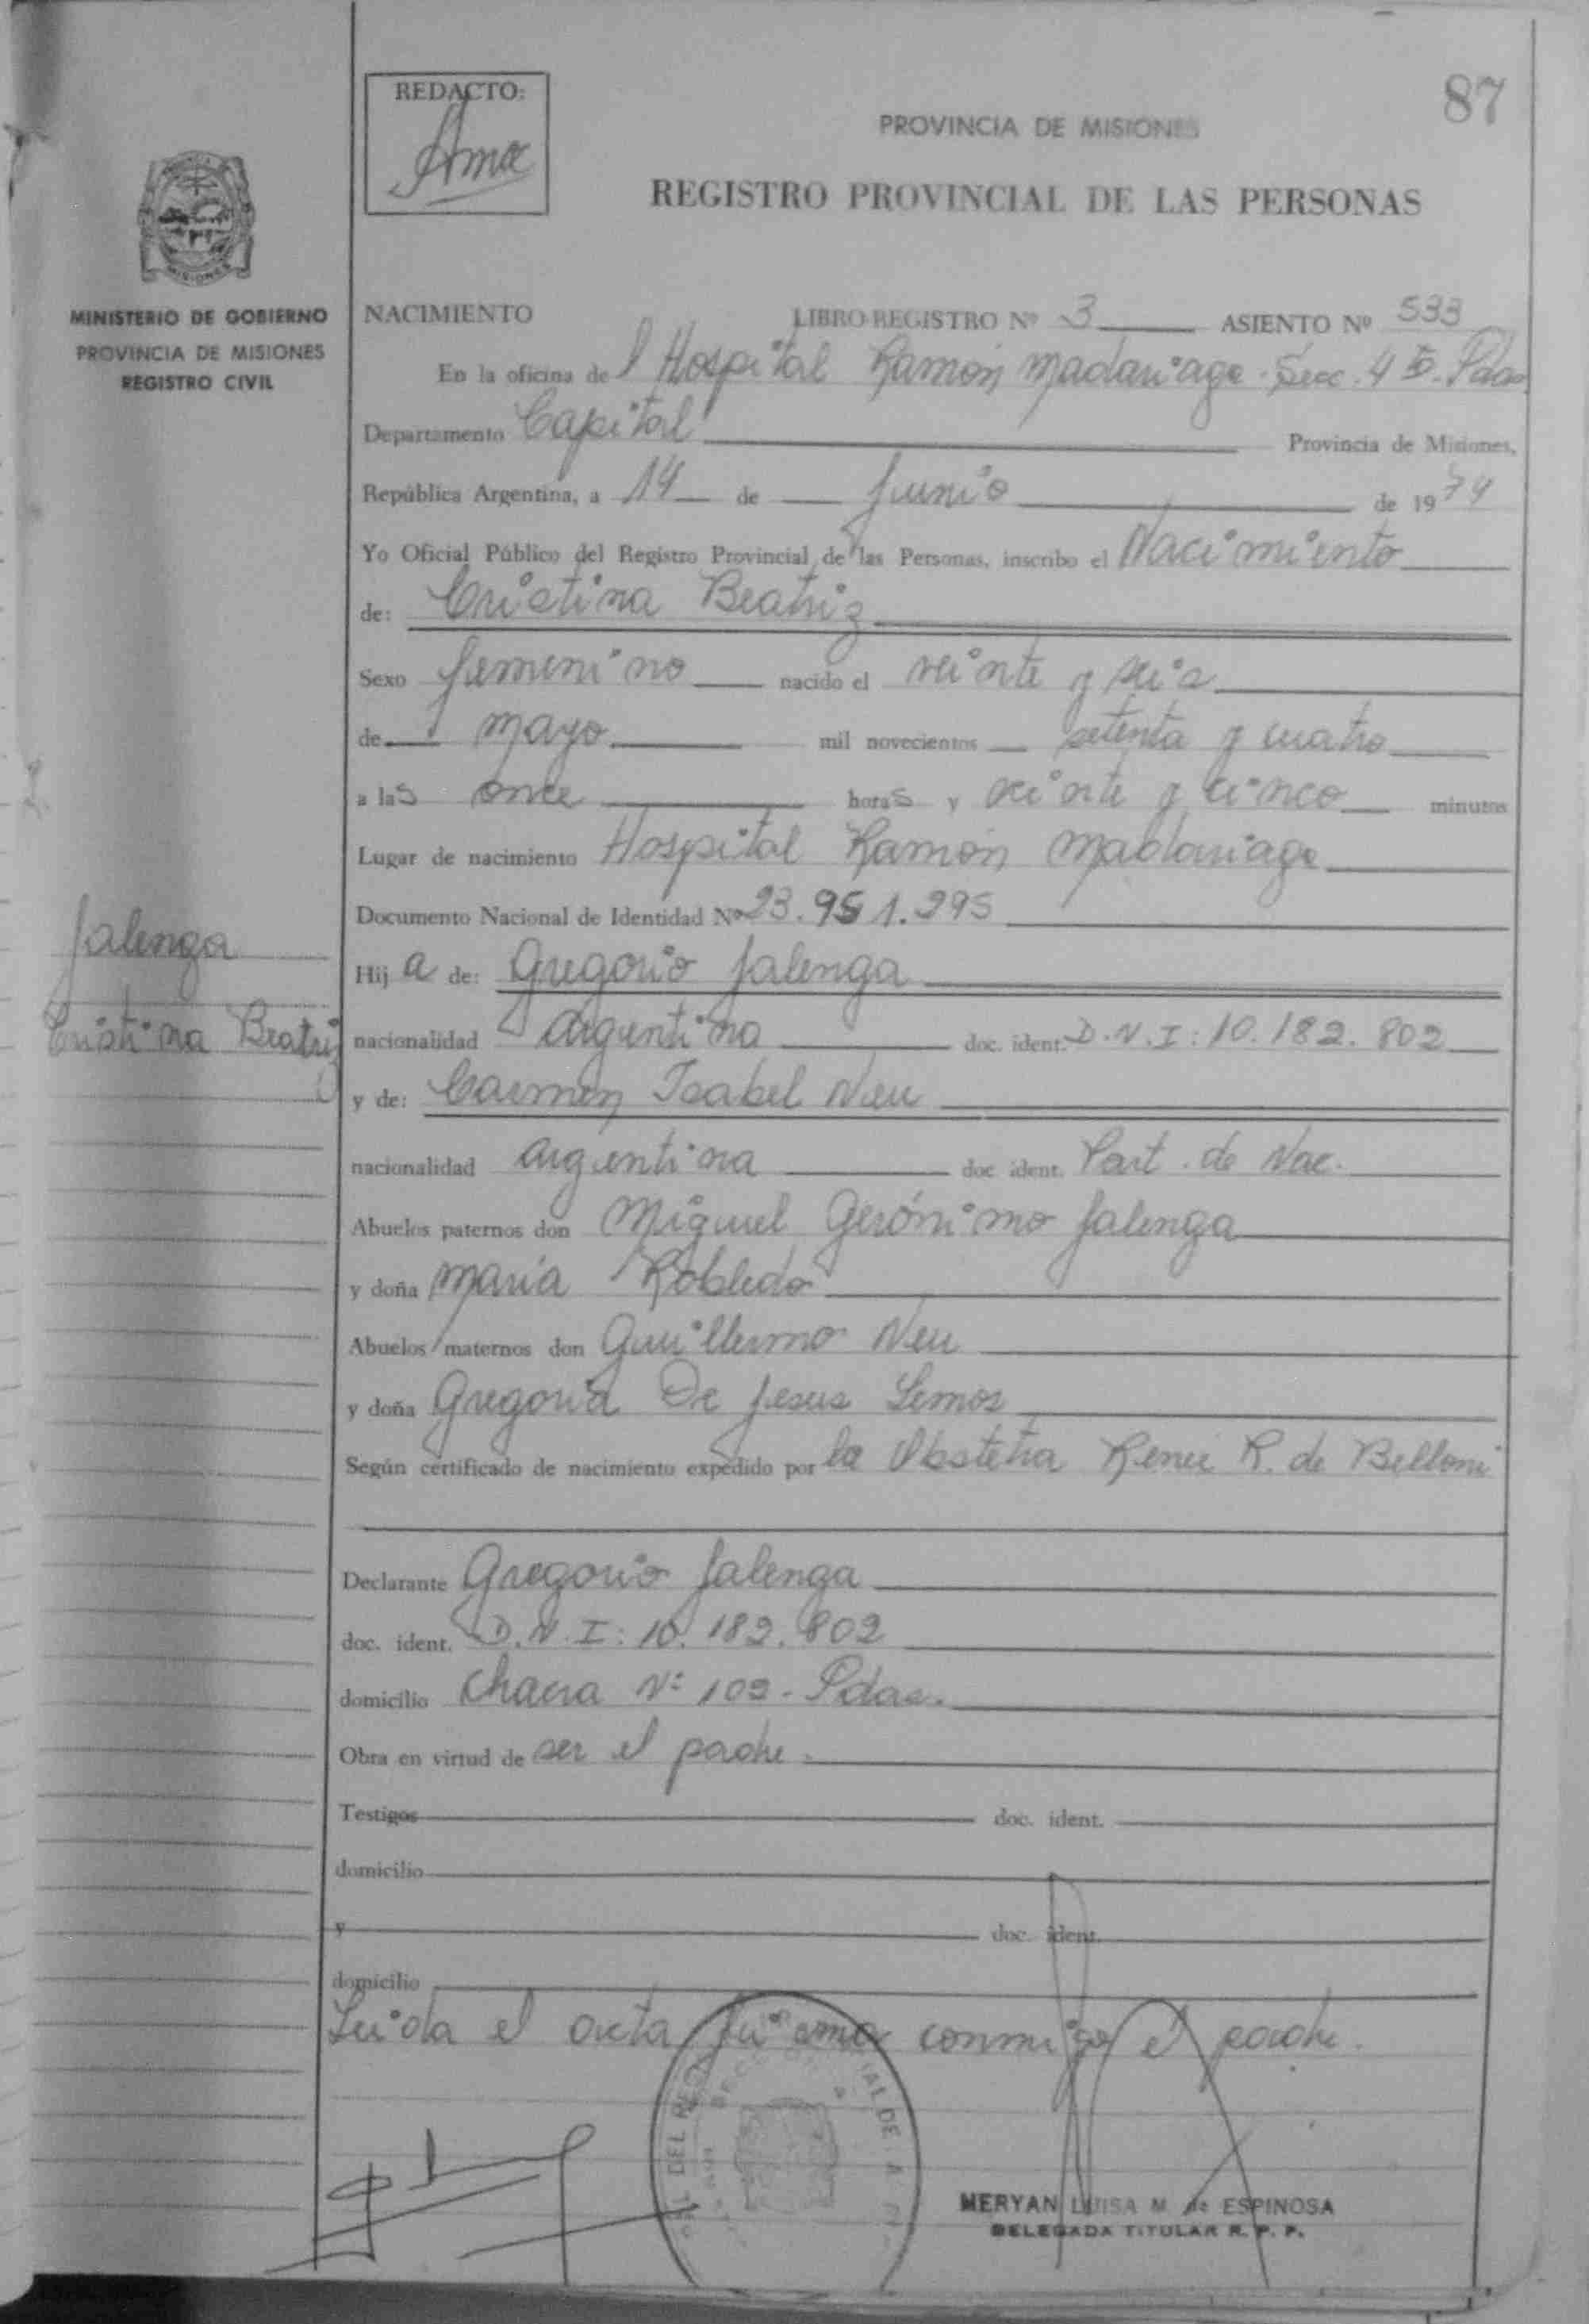 87
REDACTO:
PROVINCIA DE MISIONES
REGISTRO PROVINCIAL DE LAS PERSONAS
MISIONES
MINISTERIO DE GOBIERNO
PROVINCIA DE MISIONES
REGISTRO CIVIL
NACIMIENTO LIBRO REGISTRO Nº 3 ASIENTO Nº 533
En la oficina del Hospital Ramón Madariaga Secc. 4 Pdas
Departamento Capital Provincia de Misiones,
República Argentina, a 14 de Junio de 1974
Yo Oficial Público del Registro Provincial de las Personas, inscribo el Nacimiento
de: Cristina Beatriz
Sexo femenino nacido el veinte y seis
de mayo mil novecientos setenta y cuatro
a las once horas y veinte y cinco minutos
Lugar de nacimiento Hospital Ramón Madariaga
Documento Nacional de Identidad Nº 23.951.295
Jalenga
Cristina Beatriz
Hija de: Gregorio Jalenga
nacionalidad argentina doc. ident. D.N.I: 10.182.802
y de: Carmen Isabel Neu
nacionalidad argentina doc. ident. Part. de Nac.
Abuelos paternos don Miguel Gerónimo Jalenga
y doña María Robledo
Abuelos maternos don Guillermo Neu
y doña Gregoria De Jesus Lemos
Según certificado de nacimiento expedido por la Obstetra Reneé R. de Belloni
Declarante Gregorio Jalenga
doc. ident. D.N.I: 10.182.802
domicilio Chacra Nº 102 - Pdas.
Obra en virtud de ser el padre.
Testigos doc. ident.
domicilio
y doc. ident.
domicilio
Leida el acta firma conmigo el padre.
MERYAN LUISA M. de ESPINOSA
DELEGADA TITULAR R. P. P.